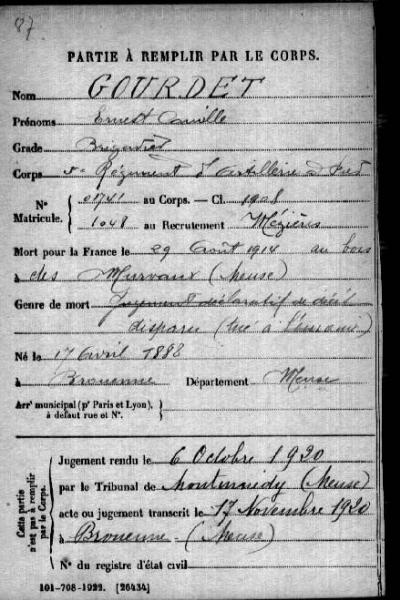 87
PARTIE À REMPLIR PAR LE CORPS.
Nom GOURDET
Prénoms Ernest Camille
Grade Brigadier
Corps 5e Régiment d'Artillerie à Pied
Nº Matricule. 01741 au Corps. — Cl. 1908
1048 au Recrutement Mézières
Mort pour la France le 29 Août 1914 au bois
à des Murvaux (Meuse)
Genre de mort Jugement déclaratif de décès
disparu (tué à l'ennemi)
Né le 17 Avril 1888
à Brouenne Département Meuse
Arr' municipal (pr Paris et Lyon),
à défaut rue et N°.
Cette partie
n'est pas à remplir
par le Corps.
Jugement rendu le 6 Octobre 1920
par le Tribunal de Montmédy (Meuse)
acte ou jugement transcrit le 17 Novembre 1920
à Brouenne (Meuse)
N° du registre d'état civil
101-708-1922. [26434]